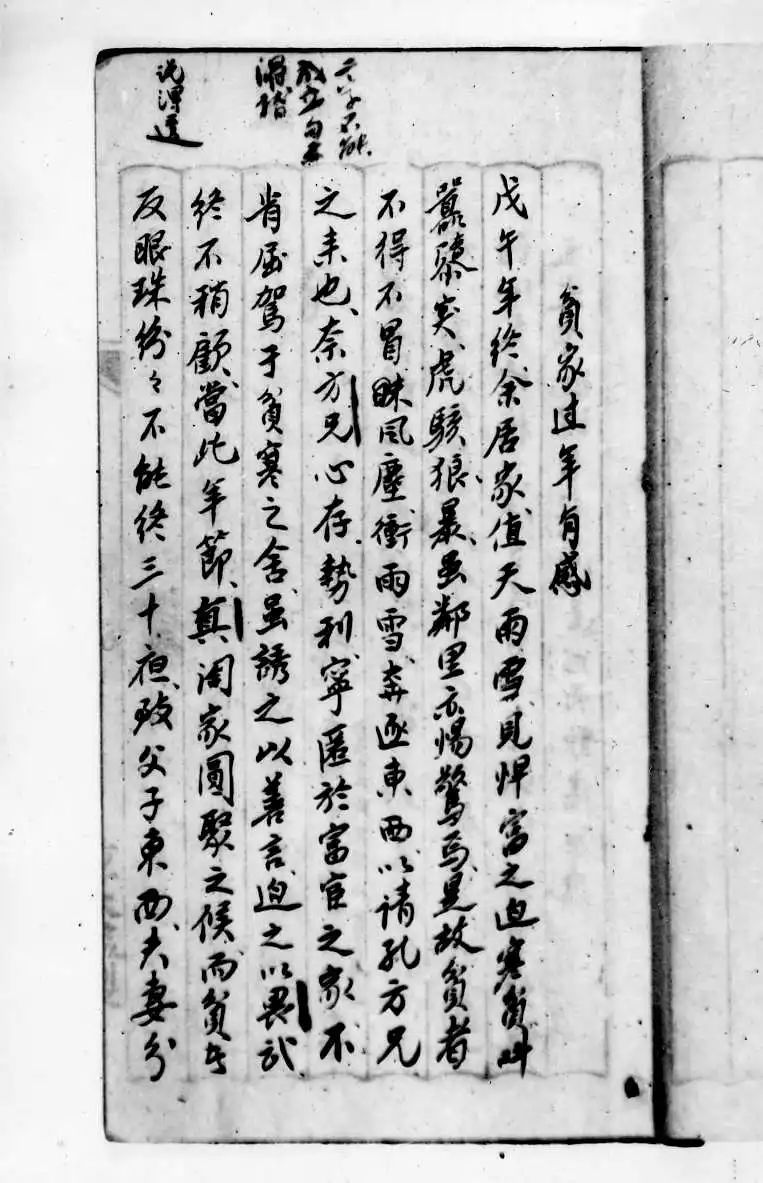 貧家过年有感
戊午年終余居家值天雨雪見悍富之迫寒貧叫
囂隳突虎駭狼暴虽鄰里亦惕驚焉是故貧者
不得不冒昧風塵衝雨雪奔逐東西以請孔方兄
之来也奈方兄心存勢利寧匿於富宦之家不
肯屈駕于貧寒之舍虽誘之以善言迫之以畏武
終不稍顧當此年節真闔家圓聚之候而貧
反眼珠紛々不能終三十夜致父子東西夫妻分
不能
滑稽
说得透